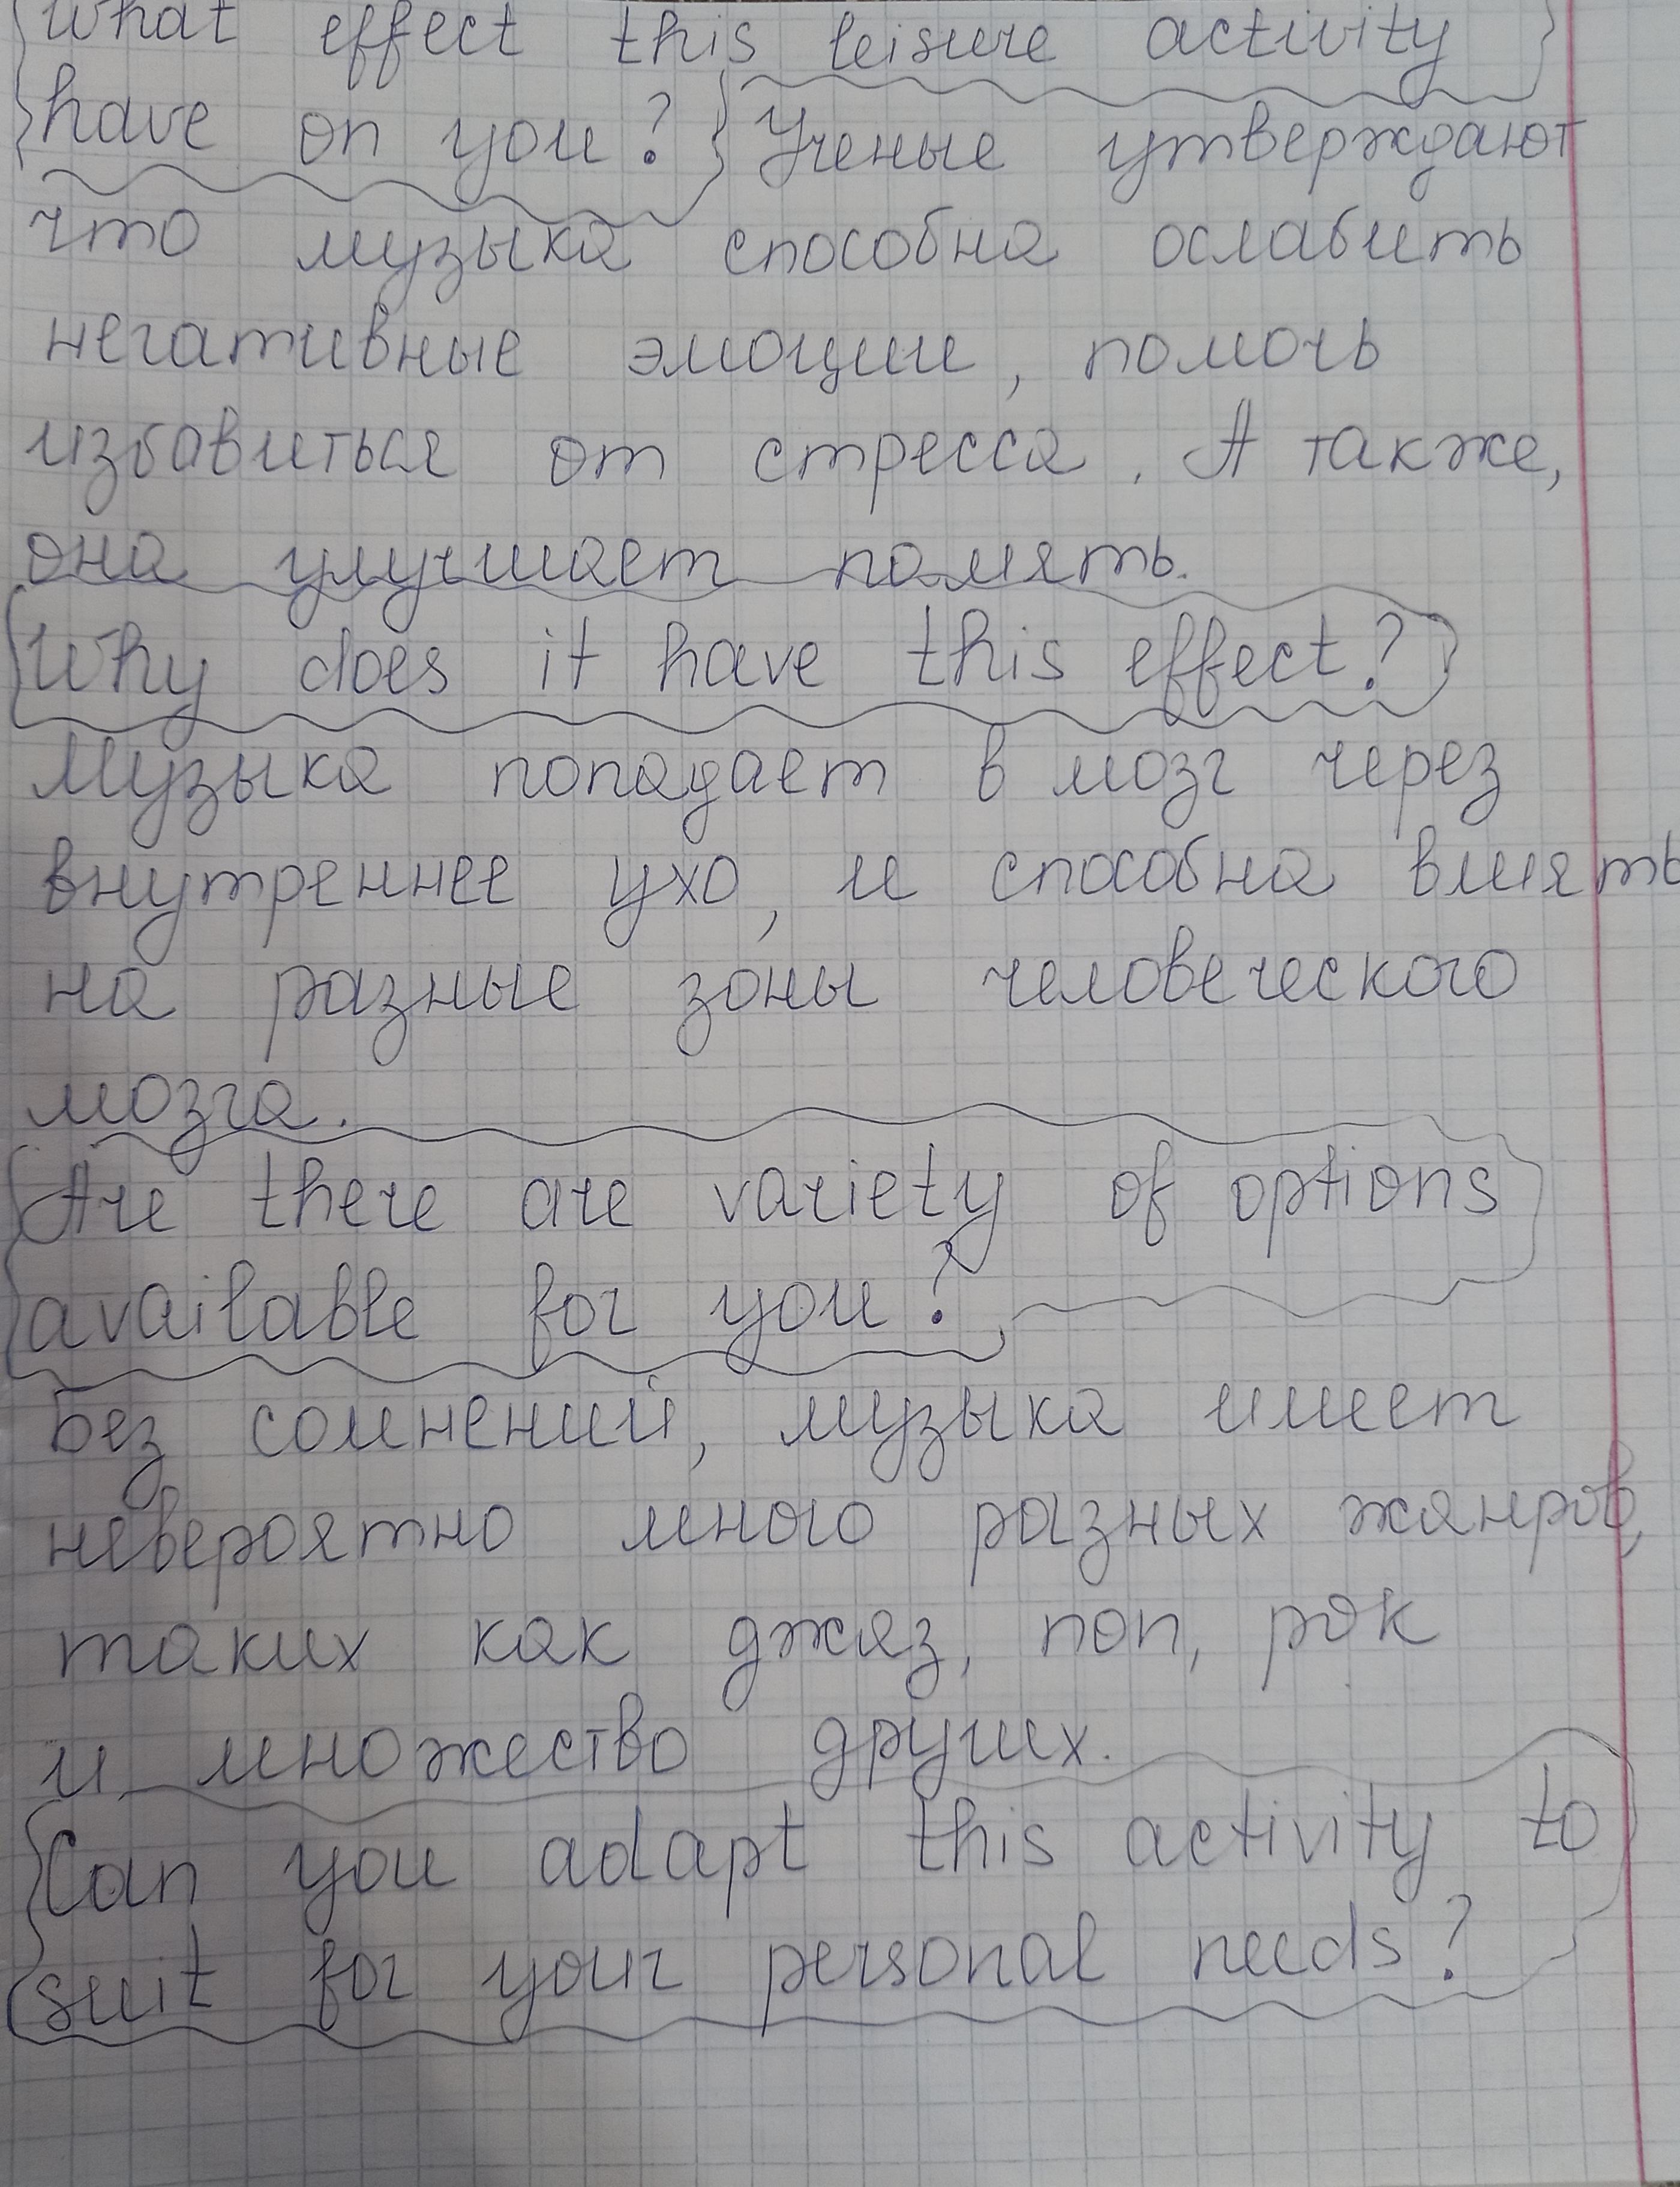 What effect this leisure activity
have on you? Ученые утверждают
что музыка способна ослабить
негативные эмоции, помочь
избавиться от стресса. А также,
она улучшает память.
Why does it have this effect?
Музыка попадает в мозг через
внутреннее ухо, и способна влиять
на разные зоны человеческого
мозга.
Are there are variety of options
available for you?
Без сомнений, музыка имеет
невероятно много разных жанров,
таких как джаз, поп, рок
и множество других.
Can you adapt this activity to
suit for your personal needs?